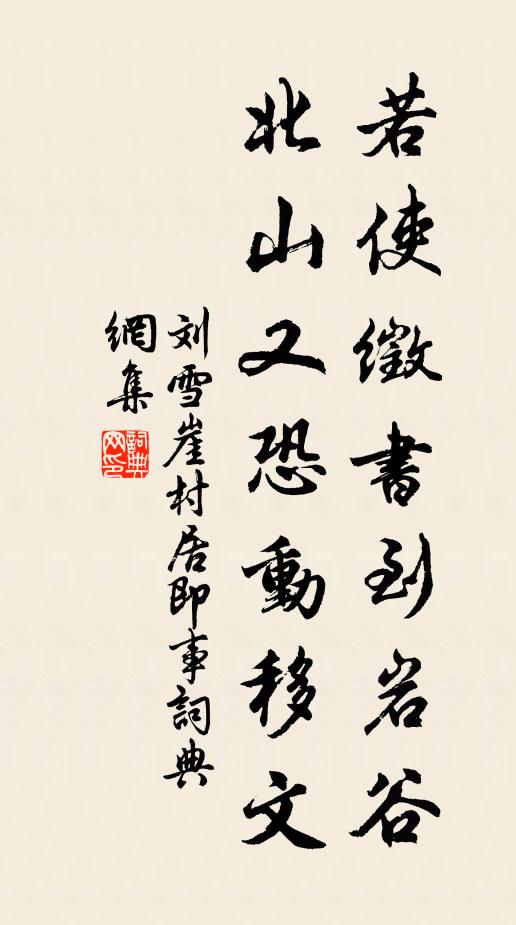 若使徵書到岩谷
北山又恐動移文
刘雪崖村居即事詞典
網集
詞典網印